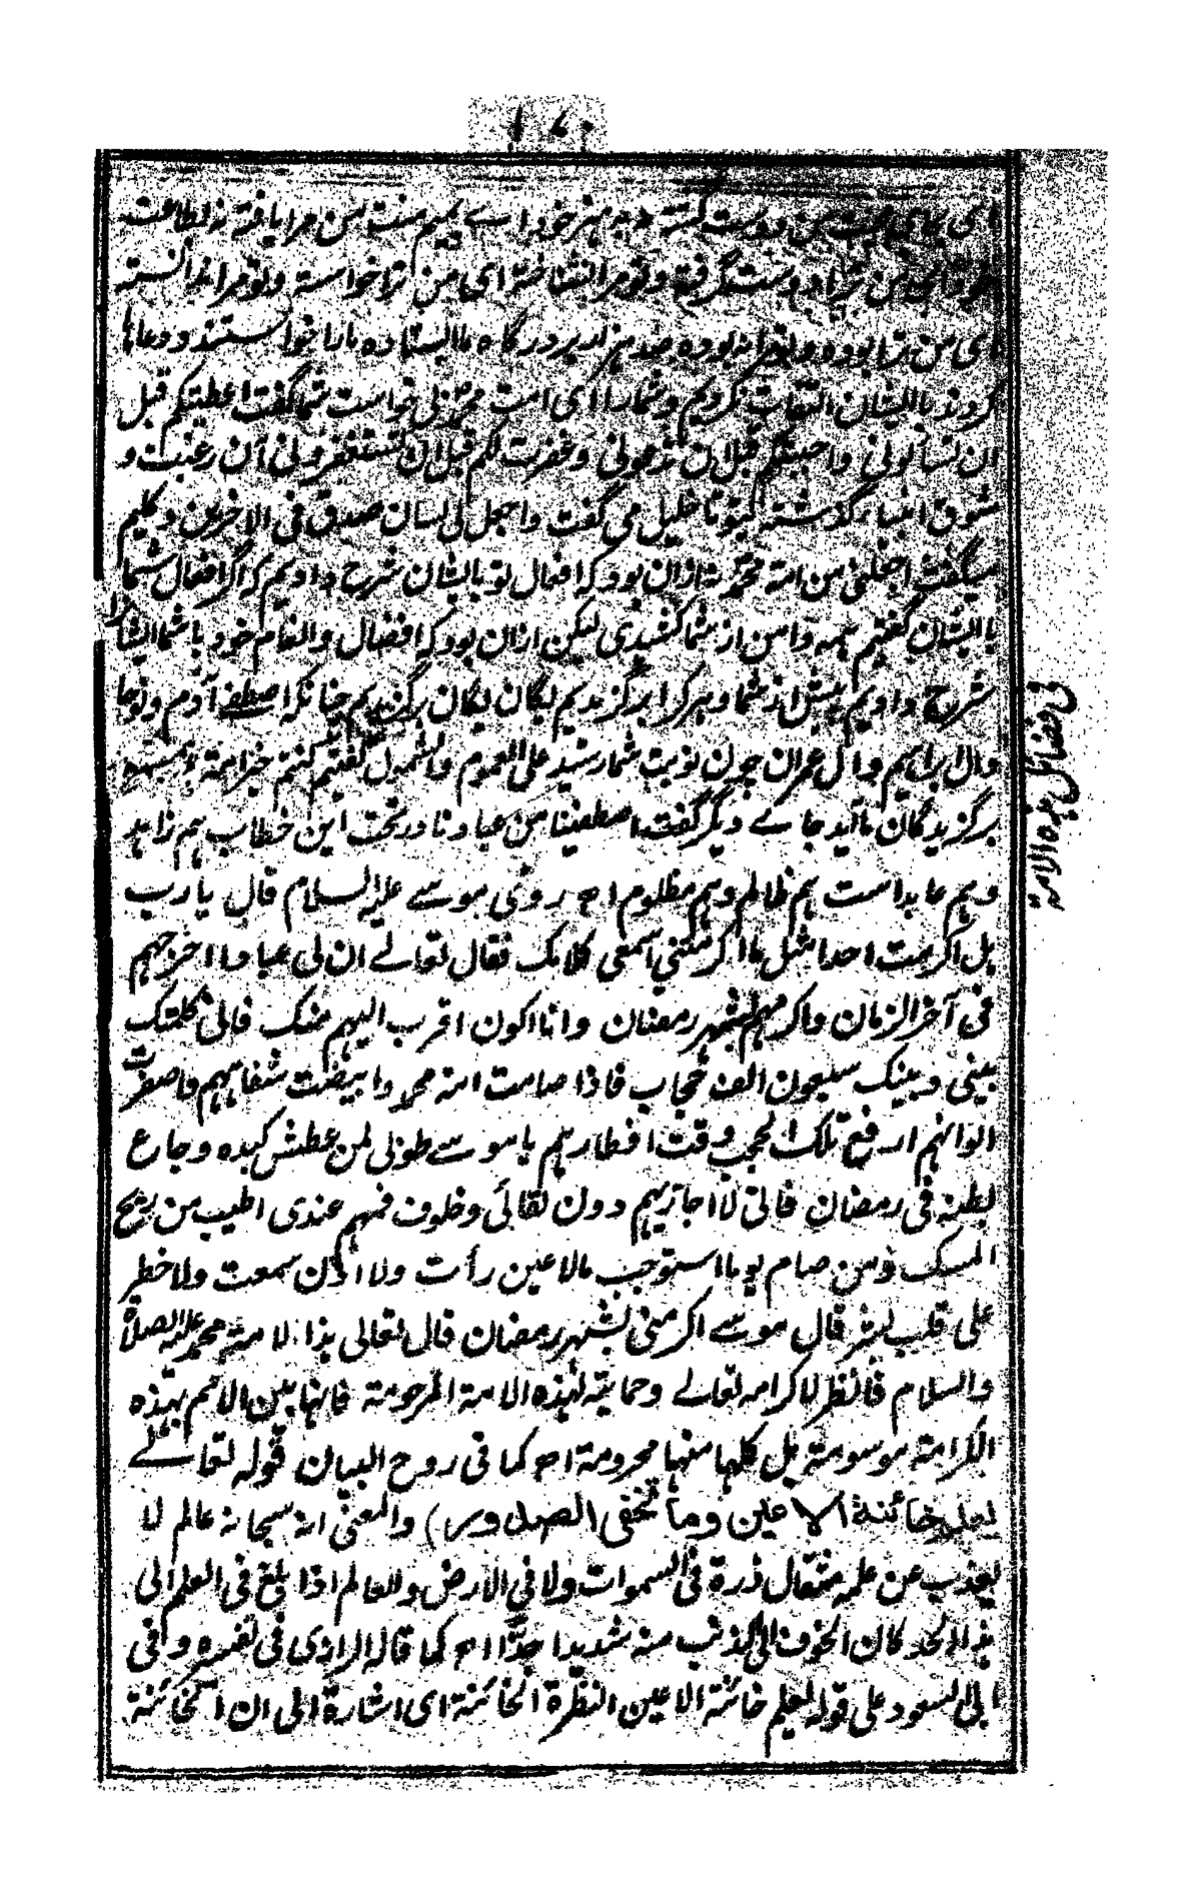 ١٧٠
خود ای من ترا دوست گرفته و تو مرا نشناخته ای من ترا خواسته و تو مرا نادانسته
ای من ترا بوده و تو مرا نابوده صد هزار بر درگاه ما ایستاده ما را خواستند و دعاها
کردند بایشان التفات نکردیم و شمارا ای امت محمد بی خواست شما گفت اعطیتکم قبل
ان تسألونی واجبتکم قبل ان تدعونی وغفرت لکم قبل ان تستغفرونی آن رغبت و
شوق انبیاء گذشته بتو تا خلیل می گفت واجعل لی لسان صدق فی الاخرین و کلیم
میگفت اجعلنی من امة محمد نه ازان بود که افعال تو بایشان شرح دادیم که اگر افعال شما
بایشان گفتیم همه دامن از شما کشیدی لیکن ازان بود که افضال و انعام خود باشما ایشانرا
شرح دادیم پیش از شما هر کرا برگزیدیم یگان یگان برگزیدیم چنانکه اصطفی آدم ونوحا
وال ابراهیم وال عمران چون نوبت شما رسید علی العموم والشمول گفتیم کنتم خیر امة
برگزیدگان مائید جاے دیگر گفت اصطفینا من عبادنا در تحت این خطاب هم زاهد
وهم عابد است هم ظالم وهم مظلوم اھ روی موسے علیه السلام قال یا رب
هل اکرمت احدا مثل ما اکرمتنی اسمعنی کلامک فقال تعالے ان لی عبادا اخرجهم
فی آخر الزمان واکرمهم بشهر رمضان وانا اکون اقرب الیهم منک فانی کلمتک
بینی وبینک سبعون الف حجاب فاذا صامت امة محمد وابیضت شفاههم واصفرت
الوانهم ارفع تلک الحجب وقت افطارهم یا موسے طوبی لمن عطش کبده وجاع
بطنه فی رمضان فانی لا اجازیهم دون لقائی وخلوف فمهم عندی اطیب من ریح
المسک ومن صام یوما استوجب مالا عین رأت ولا اذن سمعت ولا خطر
علی قلب بشر قال موسے اکرمنی بشهر رمضان قال تعالی هذا لامة محمد علیه الصلاة
والسلام فانظر لاکرامه تعالے وحمایته لهذه الامة المرحومة فانها بین الامم بهذه
الکرامة موسومة بل کلها منها محرومة اھ کما فی روح البیان قوله تعالے
یعلم خائنة الاعین وما تخفی الصدور) والمعنی انه سبحانه عالم لا
یعذب عن علمه مثقال ذرة فی السموات ولا فی الارض والعالم اذا بلغ فی العلم الی
هذا الحد کان الخوف المذنب منه شدیدا جدًا اھ کما قاله الرازی فی تفسیره وفی
ابی السعود علی قوله یعلم خائنة الاعین النظرة الخائنة ای اشارة الی ان الخائنة
فی فضائل هذه الامة